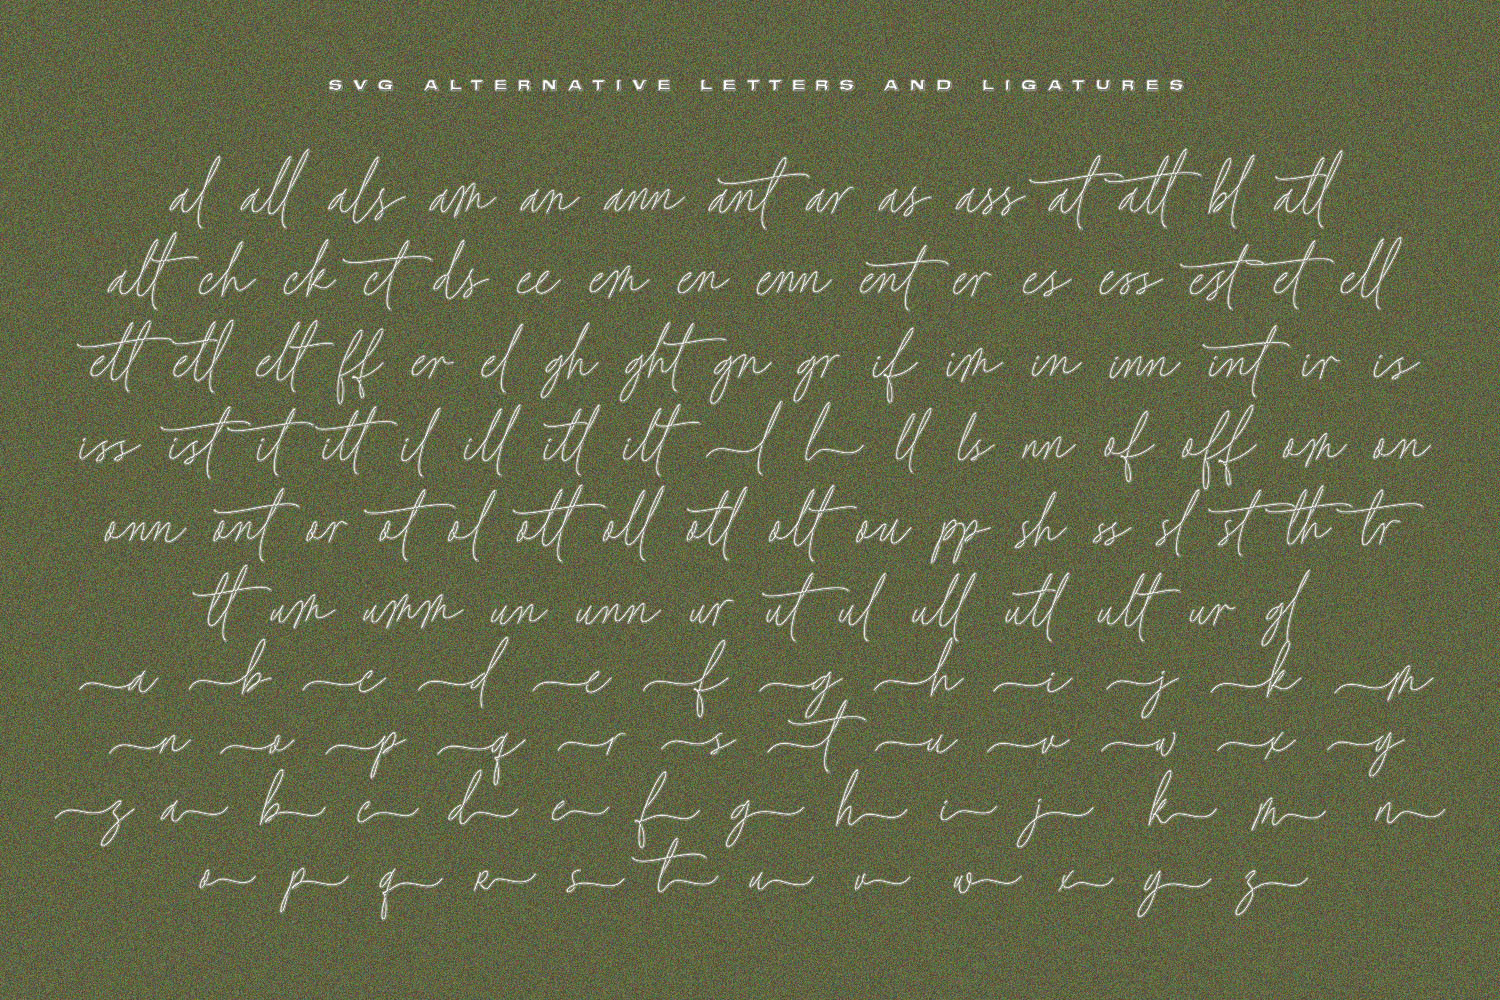 SVG ALTERNATIVE LETTERS AND LIGATURES
al all als am an ann ant ar as ass at att bl atl
alt ch ck ct ds ee em en enn ent er es ess est et ell
ett etl elt ff er el gh ght gn gr if im in inn int ir is
iss ist it itt il ill itl ilt l l ll ls nn of off om on
onn ont or ot ol ott oll otl olt ou pp sh ss sl st th tr
tt um umm un unn ur ut ul ull utl ult ur gl
a b c d e f g h i j k m
n o p q r s t u v w x y
z a b c d e f g h i j k m n
o p q r s t u v w x y z